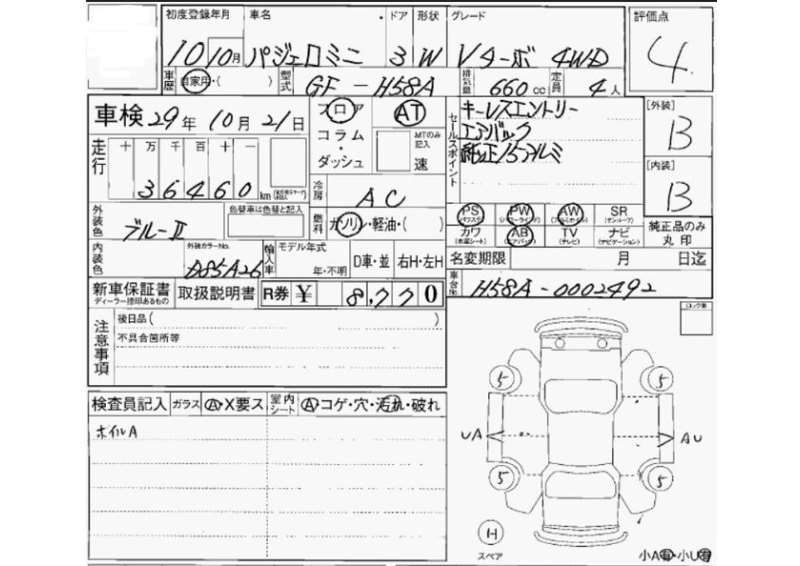 初度登録年月 車名 ドア 形状 グレード 評価点
10 10月 パジェロミニ 3 W Vターボ 4WD 4.
車歴 自家用・( ) 型式 GF-H58A 排気量 660cc 定員 4人
車検 29年 10月 21日 フロア AT キーレスエントリー [外装]
コラム MTのみ記入 セールスポイント エアバック B
ダッシュ 速 純正15アルミ
走行 十 万 千 百 十 一
36460 km 冷房 AC [内装]
B
外装色 ブルーII 色替車は色替と記入 燃料 ガソリン・軽油・( ) PS PW AW SR 純正品のみ丸印
(パワステ) (パワーウィンド) (サンルーフ)
カワ AB TV ナビ
(本革シート) (エアバック) (テレビ) (ナビゲーション)
内装色 外装カラーNo. 輸入車 モデル年式
D85A26 年・不明 D車・並 右H・左H 名変期限 月 日迄
新車保証書 取扱説明書 R券 ¥ 8,770 車台No. H58A-0002492
ディーラー捺印あるもの
注意事項 後日品( )
不具合箇所等
検査員記入 ガラス A・X要ス 室内シート A・コゲ・穴・汚れ・破れ
ホイルA
5 5
UA AU
5 5
H
スペア 小A有・小U有